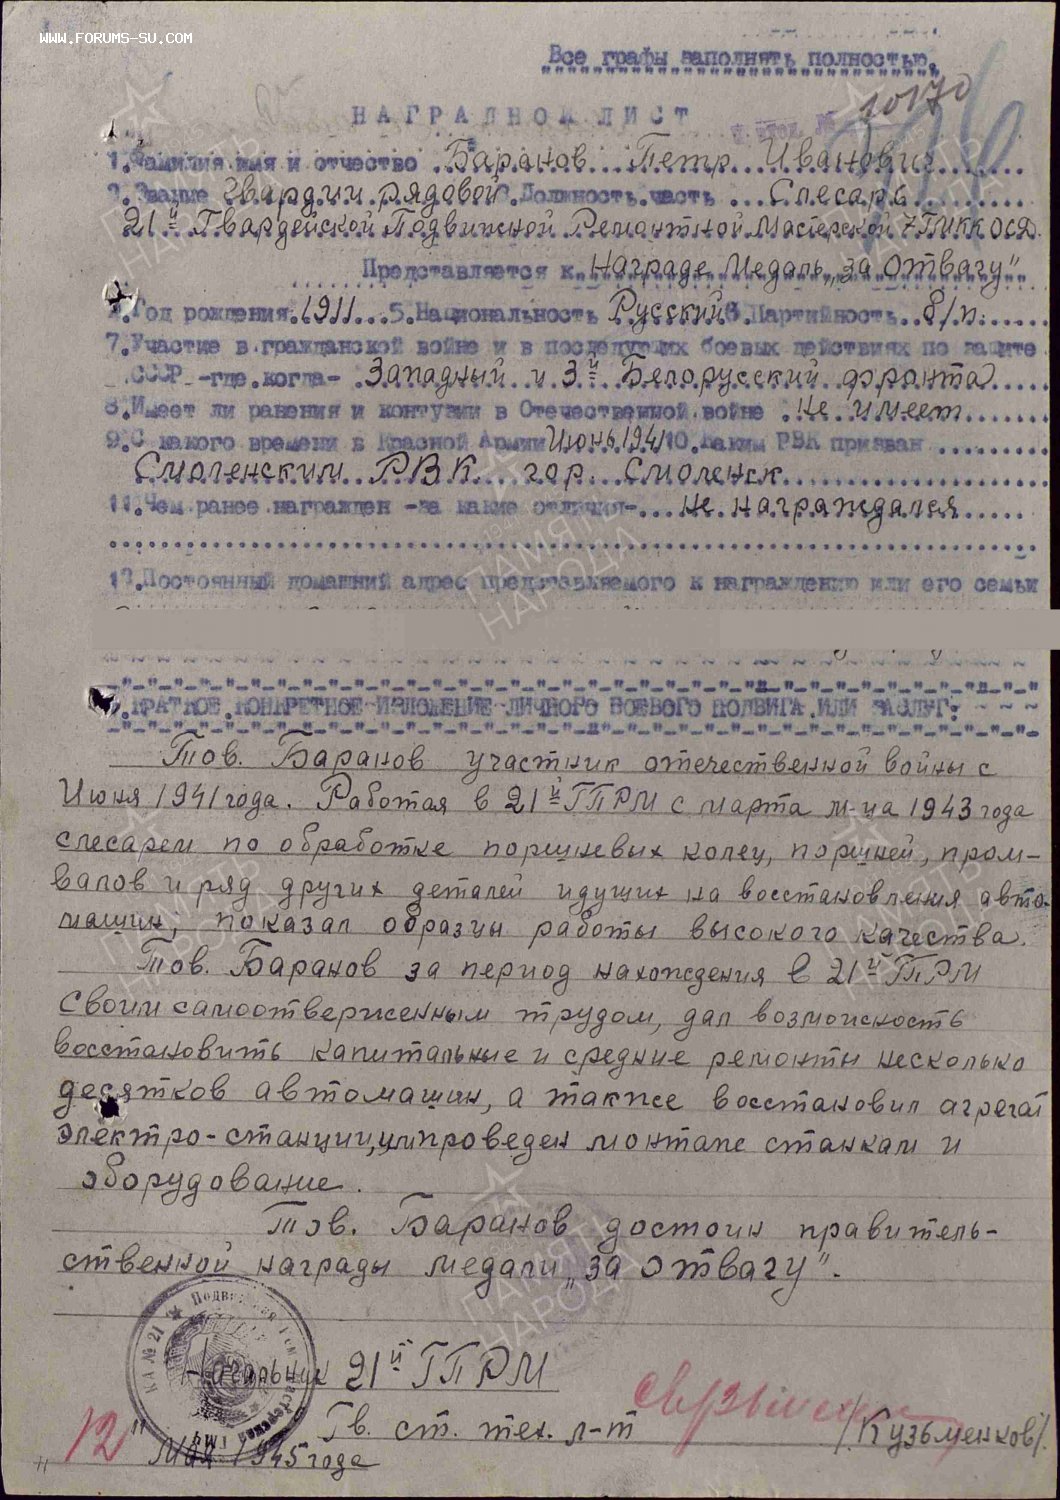 WWW.FORUMS-SU.COM
Все графы заполнять полностью.
10170
НАГРАДНОЙ ЛИСТ
1. Фамилия имя и отчество Баранов Петр Иванович
2. Звание Гвардии рядовой 3. Должность часть Слесарь
21й Гвардейской Подвижной Ремонтной Мастерской 7ГМКК ОСД.
Представляется к Награде Медаль „за Отвагу"
4. Год рождения 1911 5. Национальность Русский 6. Партийность б/п.
7. Участие в гражданской войне и в последующих боевых действиях по защите
СССР -где когда- Западный и 3й Белорусский фронта
8. Имеет ли ранения и контузии в Отечественной войне не имеет
9. С какого времени в Красной Армии Июнь 1941 10. Каким РВК призван
Смоленским РВК гор. Смоленск
11. Чем ранее награжден -за какие отличия- не награждался
12. Постоянный домашний адрес представляемого к награждению или его семьи
КРАТКОЕ КОНКРЕТНОЕ ИЗЛОЖЕНИЕ ЛИЧНОГО БОЕВОГО ПОДВИГА ИЛИ ЗАСЛУГ:
Тов. Баранов участник отечественной войны с
Июня 1941 года. Работая в 21й ГПРМ с марта м-ца 1943 года
слесарем по обработке поршневых колец, поршней, пром-
валов и ряд других деталей идущих на восстановления авто-
машин; показал образцы работы высокого качества.
Тов. Баранов за период нахождения в 21й ГПРМ
своим самоотверженным трудом, дал возможность
восстановить капитальные и средние ремонты несколько
десятков автомашин, а также восстановил агрегат
электро-станции, им проведен монтаж станкам и
оборудование.
Тов. Баранов достоин правитель-
ственной награды медали „за отвагу".
Начальник 21й ГПРМ
Гв. ст. тех. л-т /Кузьменков/.
"12" мая 1945 года
ПАМЯТЬ НАРОДА